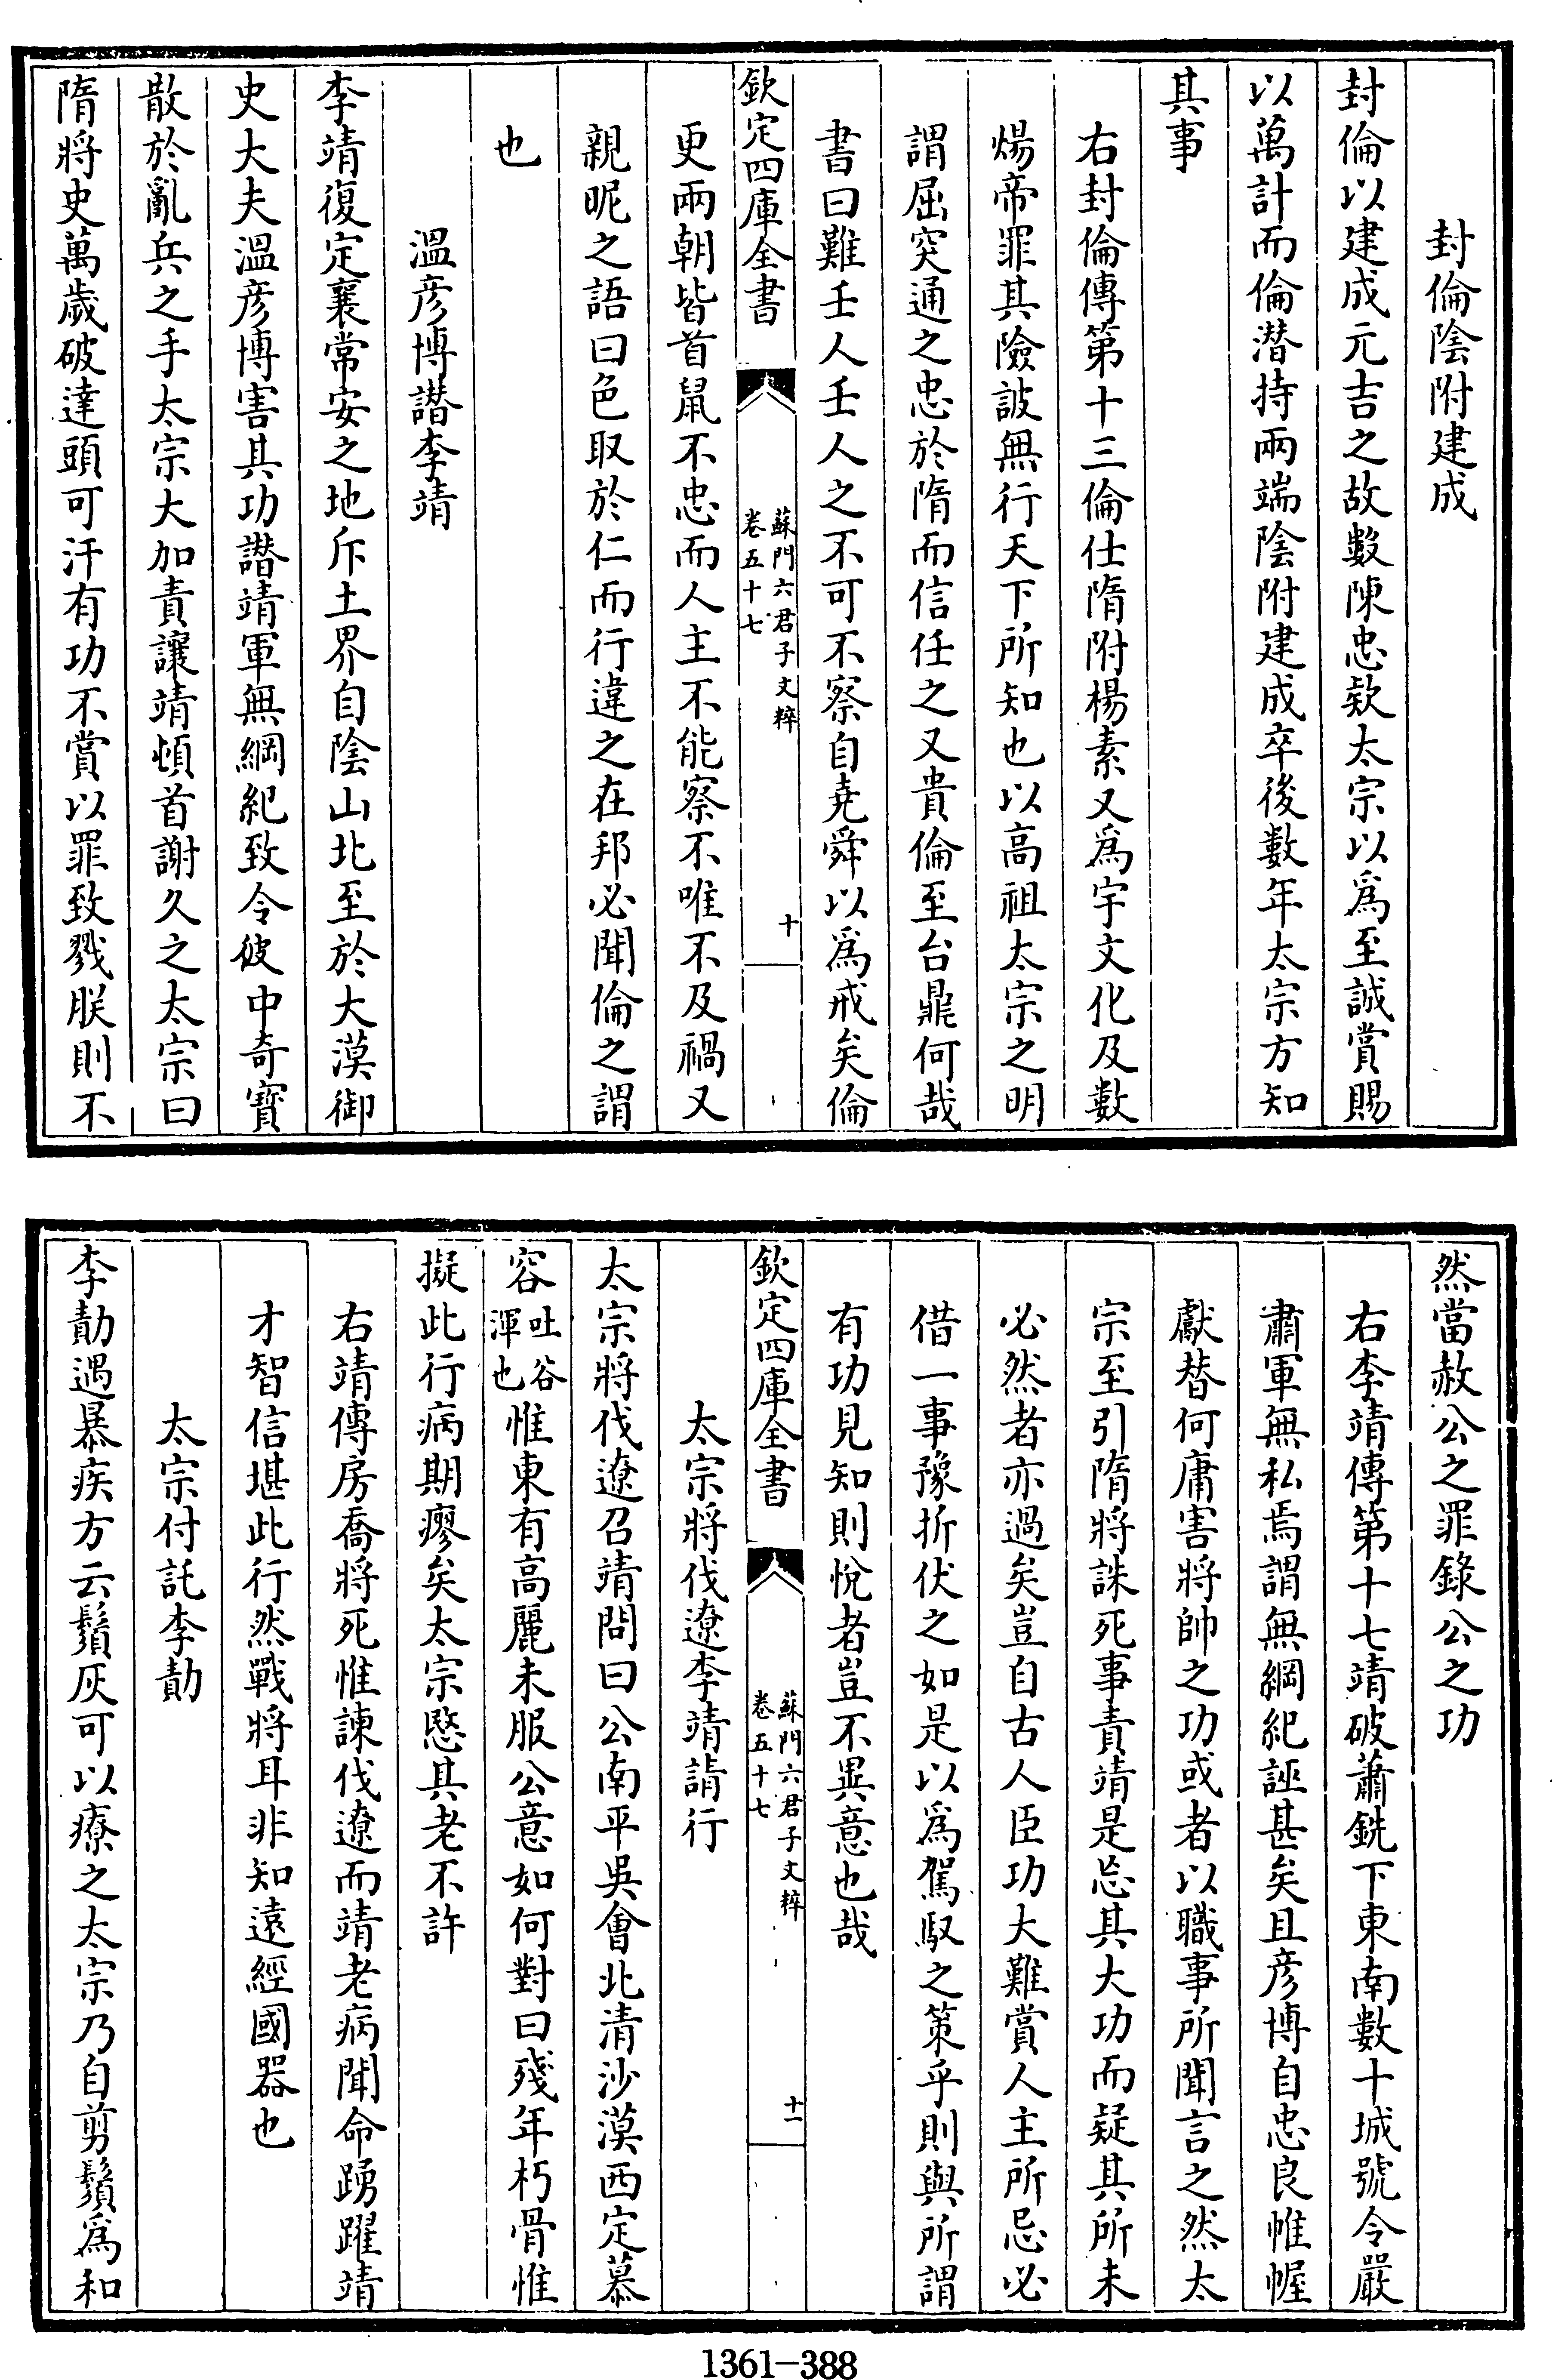 封倫陰附建成
封倫以建成元吉之故數陳忠欵太宗以爲至誠賞賜
以萬計而倫潛持兩端陰附建成卒後數年太宗方知
其事
右封倫傳第十三倫仕隋附楊素又爲宇文化及數
煬帝罪其險詖無行天下所知也以高祖太宗之明
謂屈突通之忠於隋而信任之又貴倫至台鼎何哉
書曰難壬人壬人之不可不察自堯舜以爲戒矣倫
欽定四庫全書
蘇門六君子文粹
卷五十七
十
更兩朝皆首鼠不忠而人主不能察不唯不及禍又
親昵之語曰色取於仁而行違之在邦必聞倫之謂
也
溫彦博譖李靖
李靖復定襄常安之地斥土界自陰山北至於大漠御
史大夫溫彦博害其功譖靖軍無綱紀致令彼中奇寳
散於亂兵之手太宗大加責讓靖頓首謝久之太宗曰
隋將史萬歲破達頭可汗有功不賞以罪致戮朕則不
然當赦公之罪錄公之功
右李靖傳第十七靖破蕭銑下東南數十城號令嚴
肅軍無私焉謂無綱紀誣甚矣且彦博自忠良帷幄
獻替何庸害將帥之功或者以職事所聞言之然太
宗至引隋將誅死事責靖是忘其大功而疑其所未
必然者亦過矣豈自古人臣功大難賞人主所忌必
借一事豫折伏之如是以爲駕馭之策乎則與所謂
有功見知則悅者豈不異意也哉
欽定四庫全書
蘇門六君子文粹
卷五十七
十一
太宗將伐遼李靖請行
太宗將伐遼召靖問曰公南平吳會北清沙漠西定慕
容吐谷渾也惟東有高麗未服公意如何對曰殘年朽骨惟
擬此行病期瘳矣太宗愍其老不許
右靖傳房喬將死惟諫伐遼而靖老病聞命踴躍靖
才智信堪此行然戰將耳非知遠經國器也
太宗付託李勣
李勣遇暴疾方云鬚灰可以療之太宗乃自剪鬚爲和
1361-388